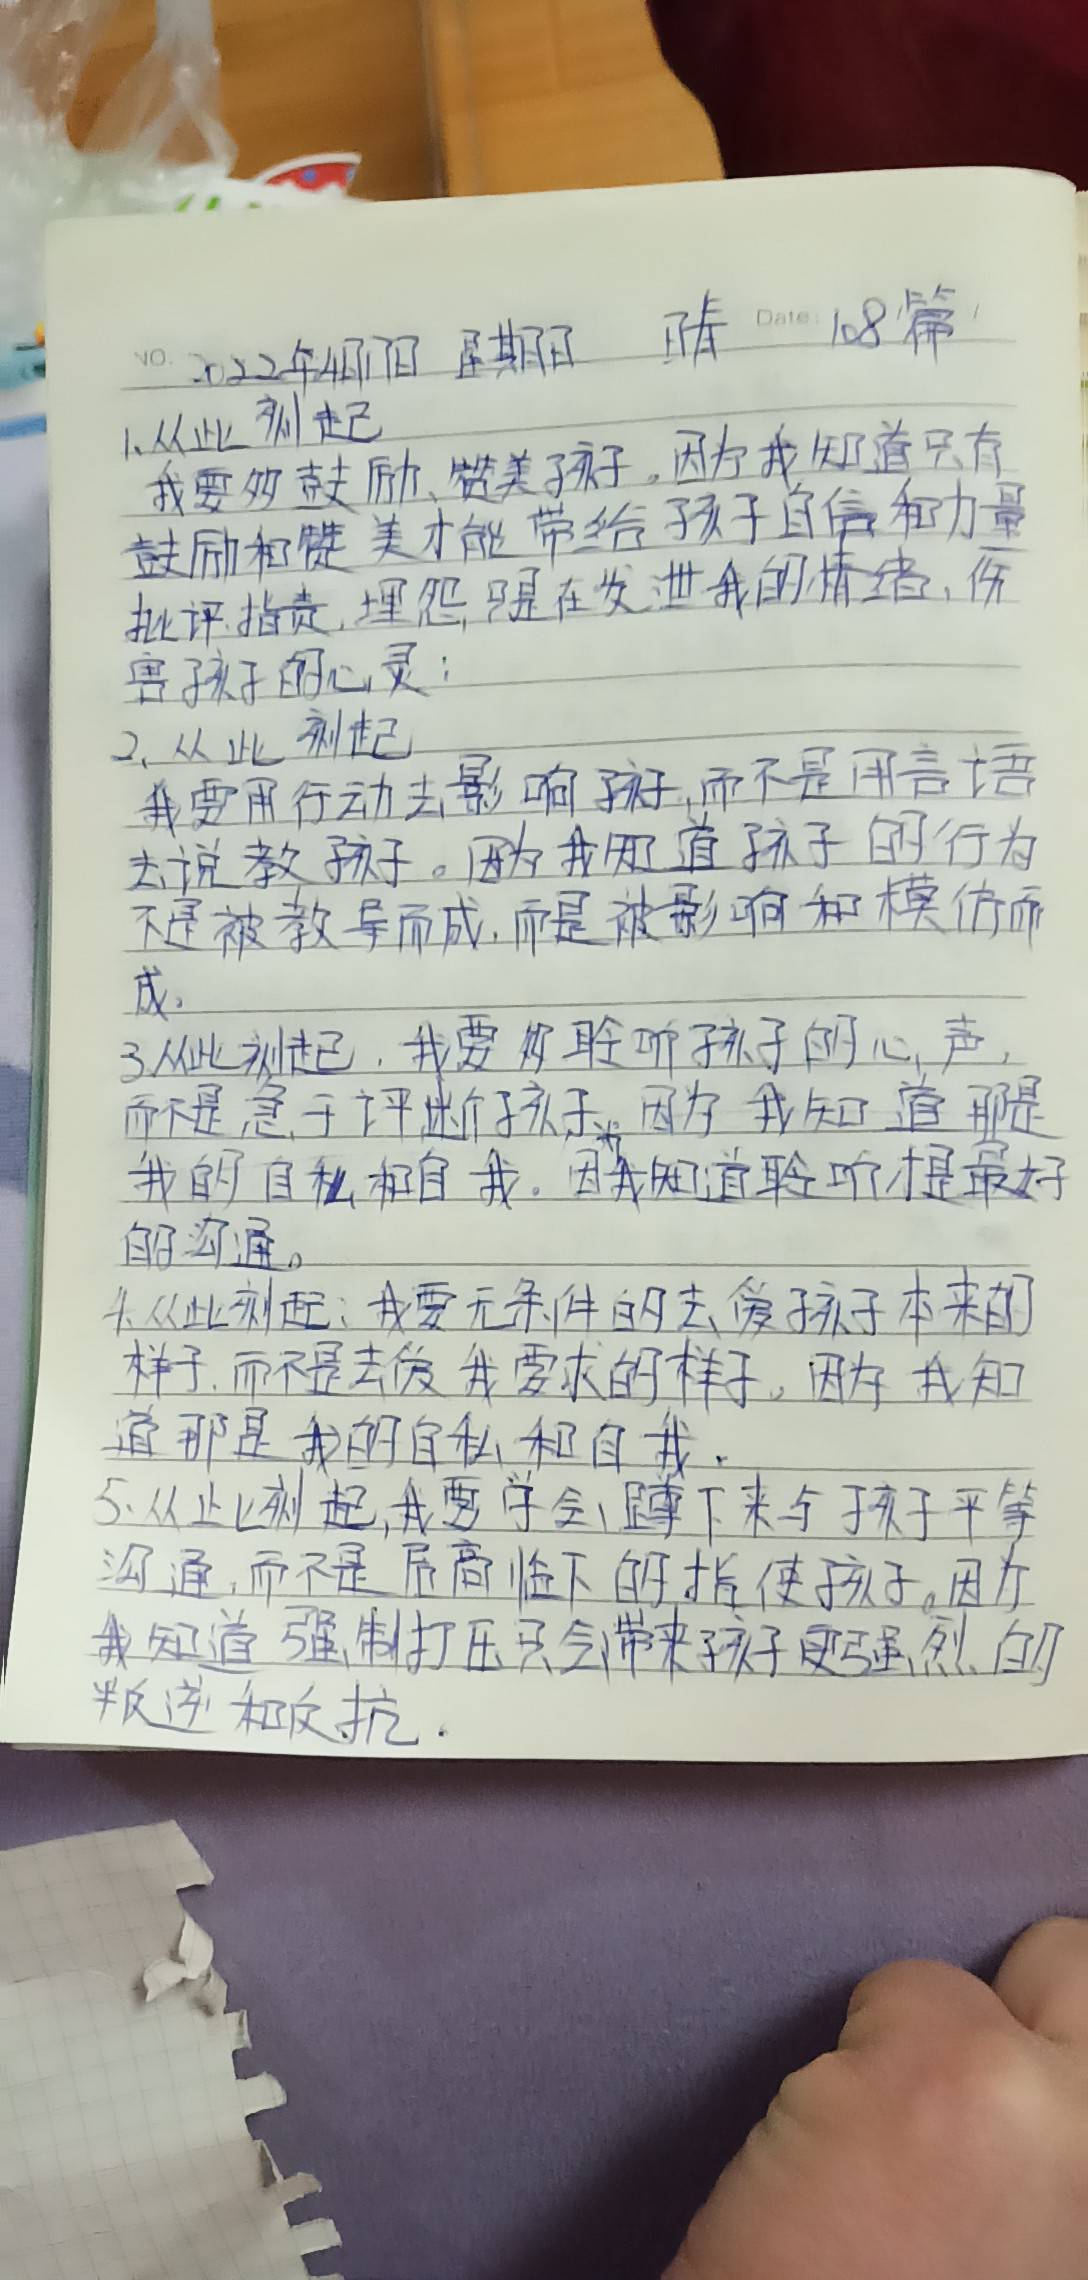 NO. 2022年4月17日 星期日 晴 Date: 108篇
1.从此刻起
我要多鼓励、赞美孩子。因为我知道只有
鼓励和赞美才能带给孩子自信和力量
批评.指责,埋怨,只是在发泄我的情绪,伤
害孩子的心灵;
2、从此刻起
我要用行动去影响孩子,而不是用言语
去说教孩子。因为我知道孩子的行为
不是被教导而成,而是被影响和模仿而
成。
3从此刻起,我要多聆听孩子的心声,
而不是急于评断孩子。因为我知道那是
我的自私和自我。因为我知道聆听才是最好
的沟通。
4.从此刻起:我要无条件的去爱孩子本来的
样子.而不是去爱我要求的样子。因为我知
道那是我的自私和自我.
5.从此刻起,我要学会蹲下来与孩子平等
沟通,而不是居高临下的指使孩子。因为
我知道强制打压只会带来孩子更强烈的
叛逆和反抗.